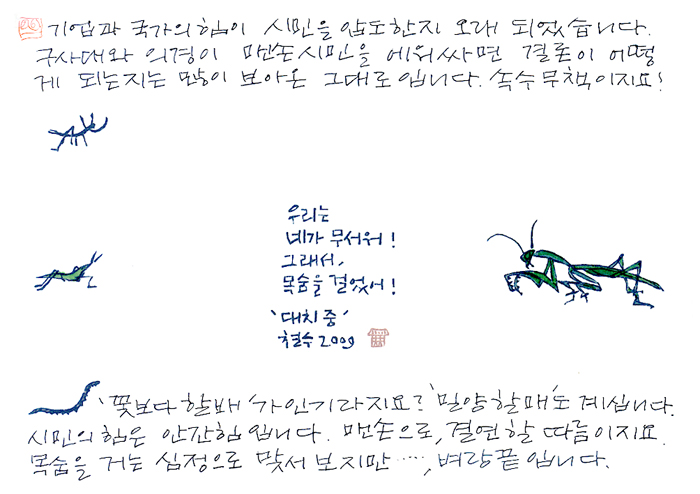 기업과 국가의 힘이 시민을 압도한지 오래 되었습니다.
구사대와 의경이 맨손시민을 에워싸면 결론이 어떻
게 되는지는 많이 보아온 그대로입니다. 속수무책이지요!
우리는
네가 무서워!
그래서,
목숨을 걸었어!
'대치 중'
철수 2009
'꽃보다 할배'가 인기라지요? '밀양할매'도 계십니다.
시민의 힘은 안간힘입니다. 맨손으로, 결연할 따름이지요.
목숨을 거는 심정으로 맞서 보지만 ……, 벼랑끝입니다.